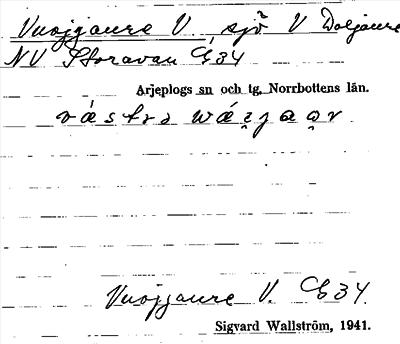 Vuojjaure V. sjö V Doljaure
NV Storavan G34
Arjeplogs sn och tg, Norrbottens län.
västra
Vuojjaure V. G34.
Sigvard Wallström, 1941.